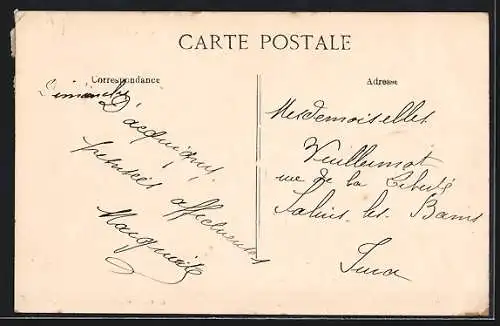 CARTE POSTALE
Correspondance
Adresse
Dimanche
D'acquigny
pensées affectueuses
Marguerite
Mesdemoiselles
Vuillermot
rue de la Liberté
Salins les Bains
Jura